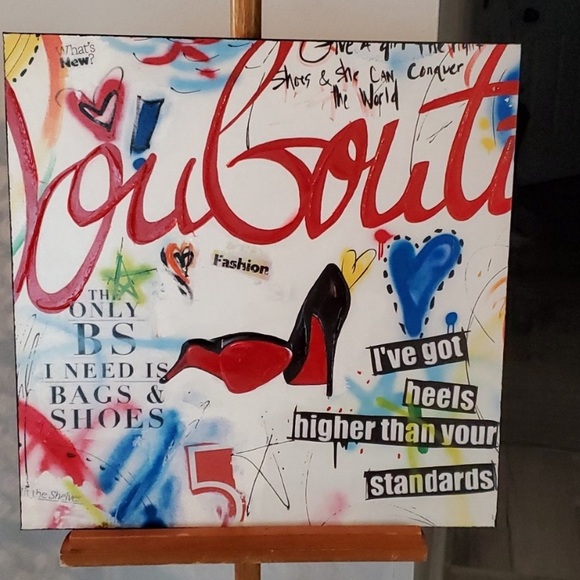 What's
New?
Give A girl The right
Shoes & She CAN Conquer
the World
ouBouti
Fashion
THE
ONLY
BS
I NEED IS
BAGS &
SHOES
I've got
heels
higher than your
standards
5
the Shelves